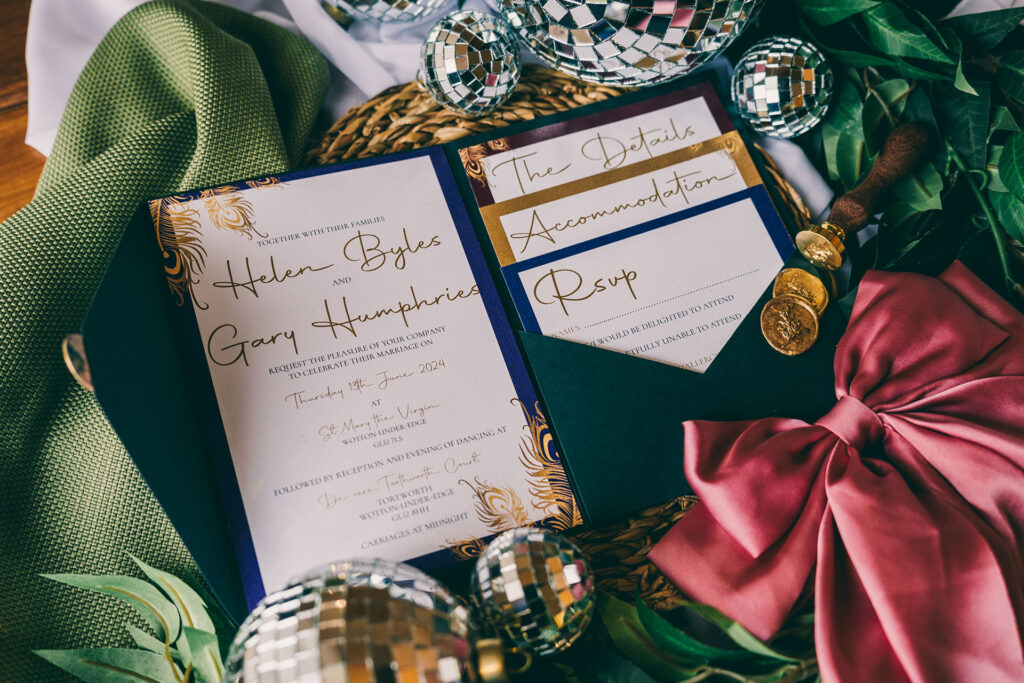 TOGETHER WITH THEIR FAMILIES
Helen Byles
AND
Gary Humphries
REQUEST THE PLEASURE OF YOUR COMPANY
TO CELEBRATE THEIR MARRIAGE ON
Thursday 13th June 2024
AT
St Mary the Virgin
WOTTON-UNDER-EDGE
GL12 7LS
FOLLOWED BY RECEPTION AND EVENING OF DANCING AT
De vere Tortworth Court
TORTWORTH
WOTTON-UNDER-EDGE
GL12 8HH
CARRIAGES AT MIDNIGHT
The Details
Accommodation
Rsvp
NAMES:
WOULD BE DELIGHTED TO ATTEND
UNABLE TO ATTEND